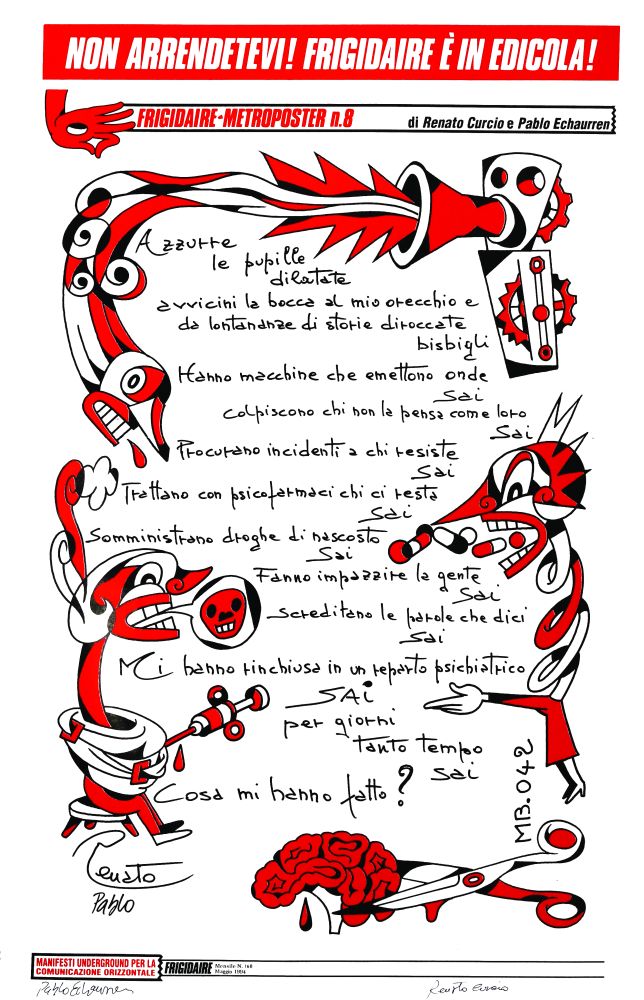 NON ARRENDETEVI! FRIGIDAIRE È IN EDICOLA!
FRIGIDAIRE-METROPOSTER n.8
di Renato Curcio e Pablo Echaurren
Azzurre
le pupille
dilatate
avvicini la bocca al mio orecchio e
da lontananze di storie diroccate
bisbigli
Hanno macchine che emettono onde
sai
colpiscono chi non la pensa come loro
sai
Procurano incidenti a chi resiste
sai
Trattano con psicofarmaci chi ci resta
sai
Somministrano droghe di nascosto
sai
Fanno impazzire la gente
sai
screditano le parole che dici
sai
Mi hanno rinchiusa in un reparto psichiatrico
SAi
per giorni
tanto tempo
sai
Cosa mi hanno fatto?
MB.042
Renato
Pablo
MANIFESTI UNDERGROUND PER LA
COMUNICAZIONE ORIZZONTALE
FRIGIDAIRE
Mensile N. 160
Maggio 1994
Pablo Echaurren
Renato Curcio